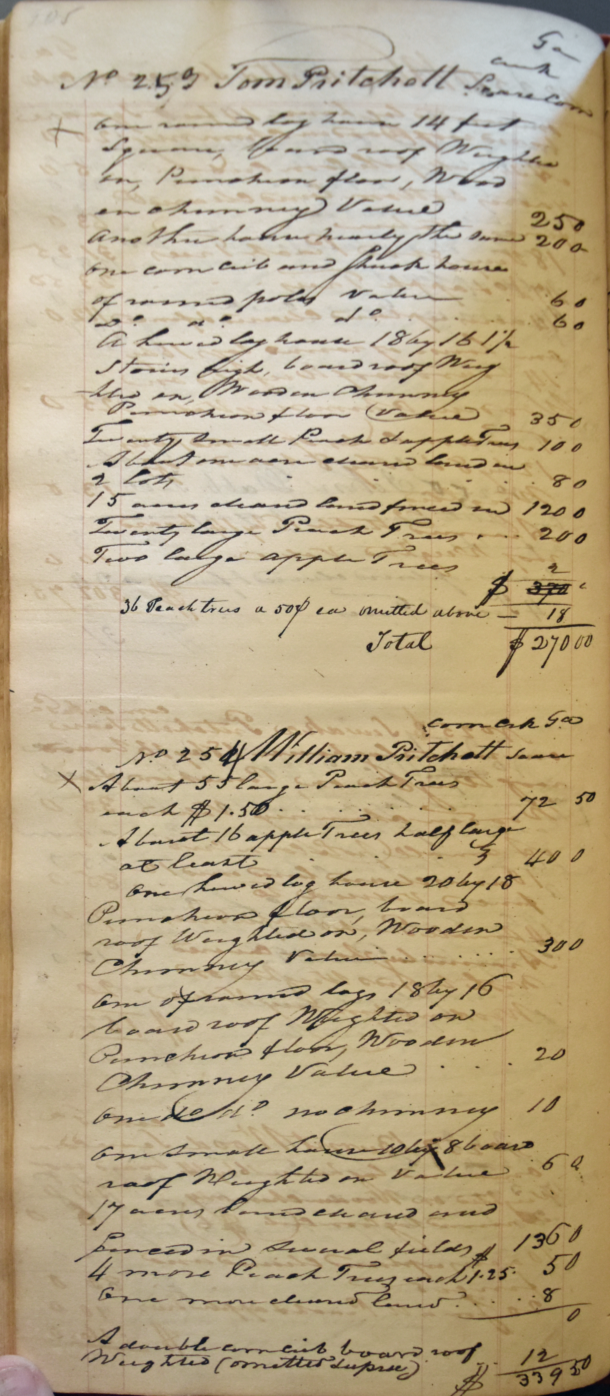 Ga
creek
No 253 Tom Pritchett Scarecorn
One round log house 14 feet
Square, board roof Weighted
on, Puncheon floor, Wood
en chimney Value 250
Another house nearly the same 200
One corn crib and shuck house
of round poles Value 60
Do do do 60
A hewed log house 18 by 16 1½
Stories high, board roof Weig
hted on, Wooden Chimney
Puncheon floor Value 350
Twenty small Peach & apple Trees 100
About one acre cleared land in
2 lots 80
15 acres cleared land fenced in 1200
Twenty large Peach Trees 200
Two large apple Trees
36 Peach trees a 50¢ ea omitted above — 18
Total $ 27000
corn creek Ga
No 254 William Pritchett Scare
About 55 large Peach Trees
each $1.50 72 50
About 16 apple Trees half large
at least 3 400
One hewed log house 20 by 18
Puncheon floor, board
roof Weighted on, Wooden
Chimney Value 300
One of round logs 18 by 16
board roof Weighted on
Puncheon floor, Wooden
Chimney Value 20
One do do no chimney 10
One small house 10 by 8 board
roof Weighted on Value 60
17 acres land cleared and
fenced in several fields $ 1360
4 more Peach Trees each 1.25 50
One more cleared land 8 0
A double corn crib board roof
Weighted (omitted supra) 12
$ 339 50